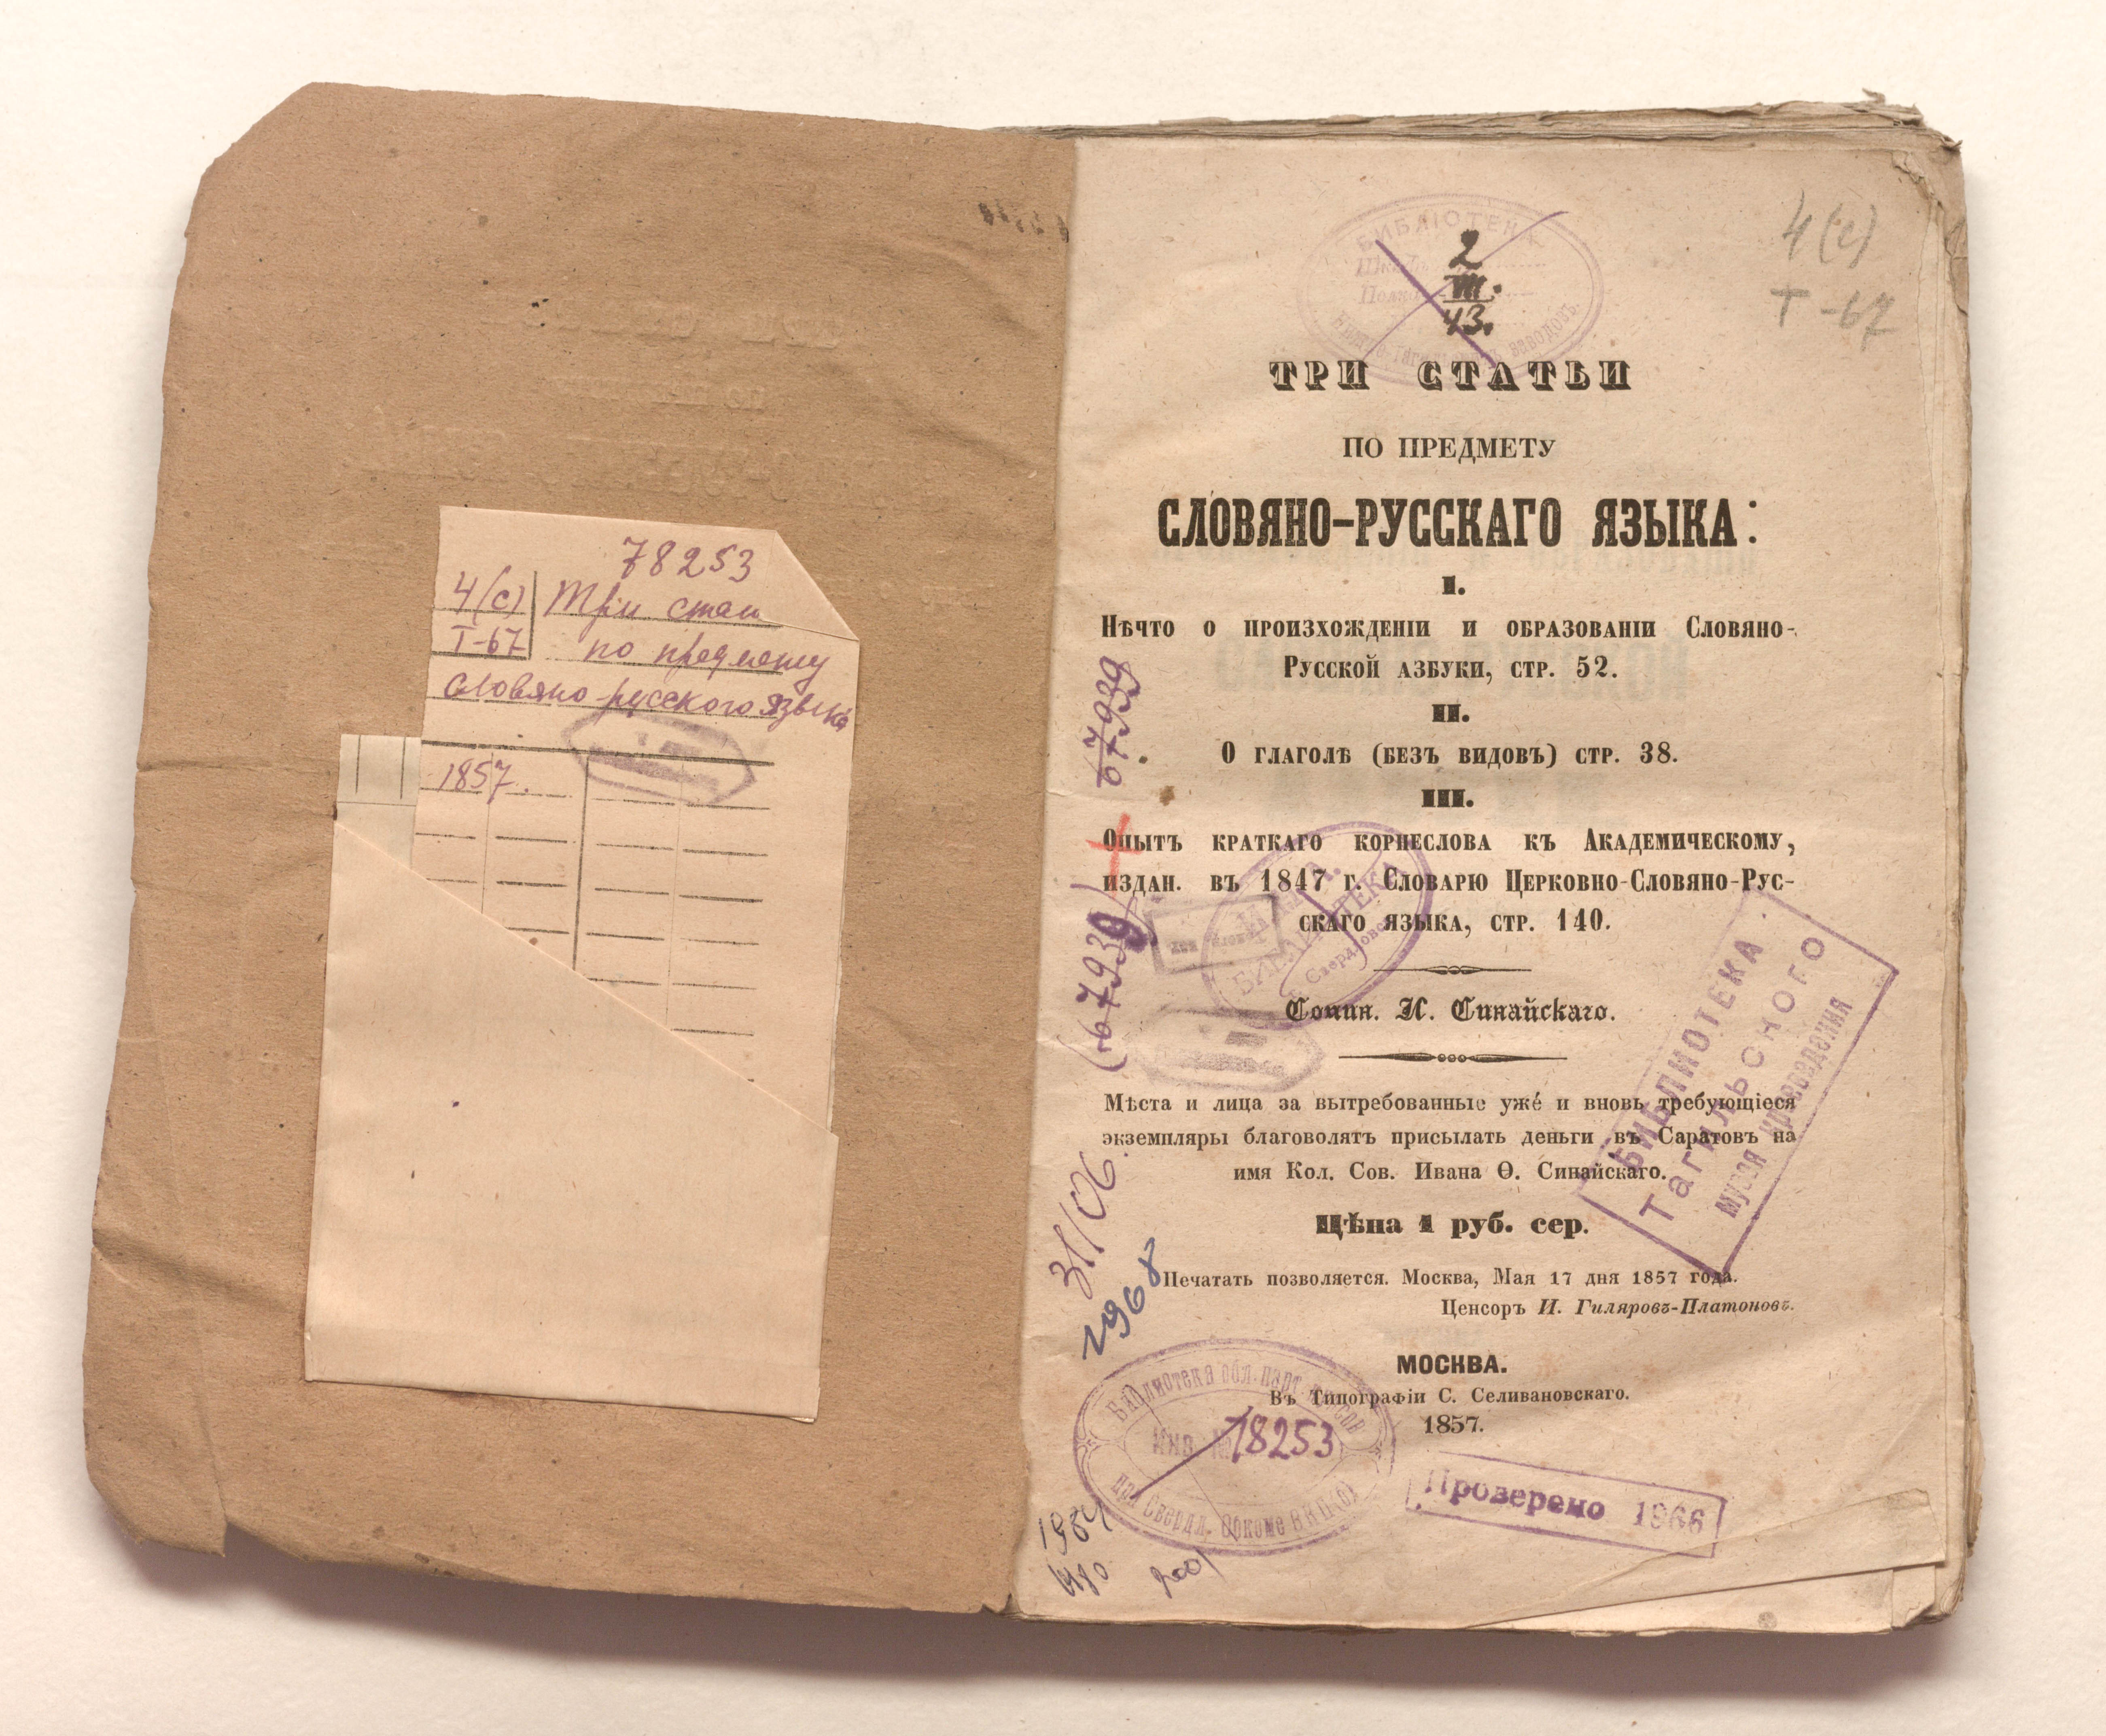 78253
4(с) Три стат
Т-67 по предмету
словяно-русского языка
1857.
4(с)
Т-67
БИБЛІОТЕКА
2
III.
43.
ТРИ СТАТЬИ
ПО ПРЕДМЕТУ
СЛОВЯНО-РУССКАГО ЯЗЫКА:
I.
Нѣчто о произхожденіи и образованіи Словяно-
Русской азбуки, стр. 52.
II.
О глаголѣ (безъ видовъ) стр. 38.
III.
Опытъ краткаго корнеслова къ Академическому,
издан. въ 1847 г. Словарю Церковно-Словяно-Рус-
скаго языка, стр. 140.
Сочин. И. Синайскаго.
Мѣста и лица за вытребованные уже́ и вновь требующіеся
экземпляры благоволятъ присылать деньги въ Саратовъ на
имя Кол. Сов. Ивана Ѳ. Синайскаго.
Цѣна 1 руб. сер.
Печатать позволяется. Москва, Мая 17 дня 1857 года.
Ценсоръ И. Гиляровъ-Платоновъ.
МОСКВА.
Въ Типографіи С. Селивановскаго.
1857.
67939
(67939)
БИБЛИОТЕКА
БИБЛИОТЕКА
Тагильского
музея краеведения
31/06.
1968
Библиотека обл. парт. курсов
Инв. № 78253
при Свердл. Обкоме ВКП(б)
Проверено 1966
1964
1980
2001